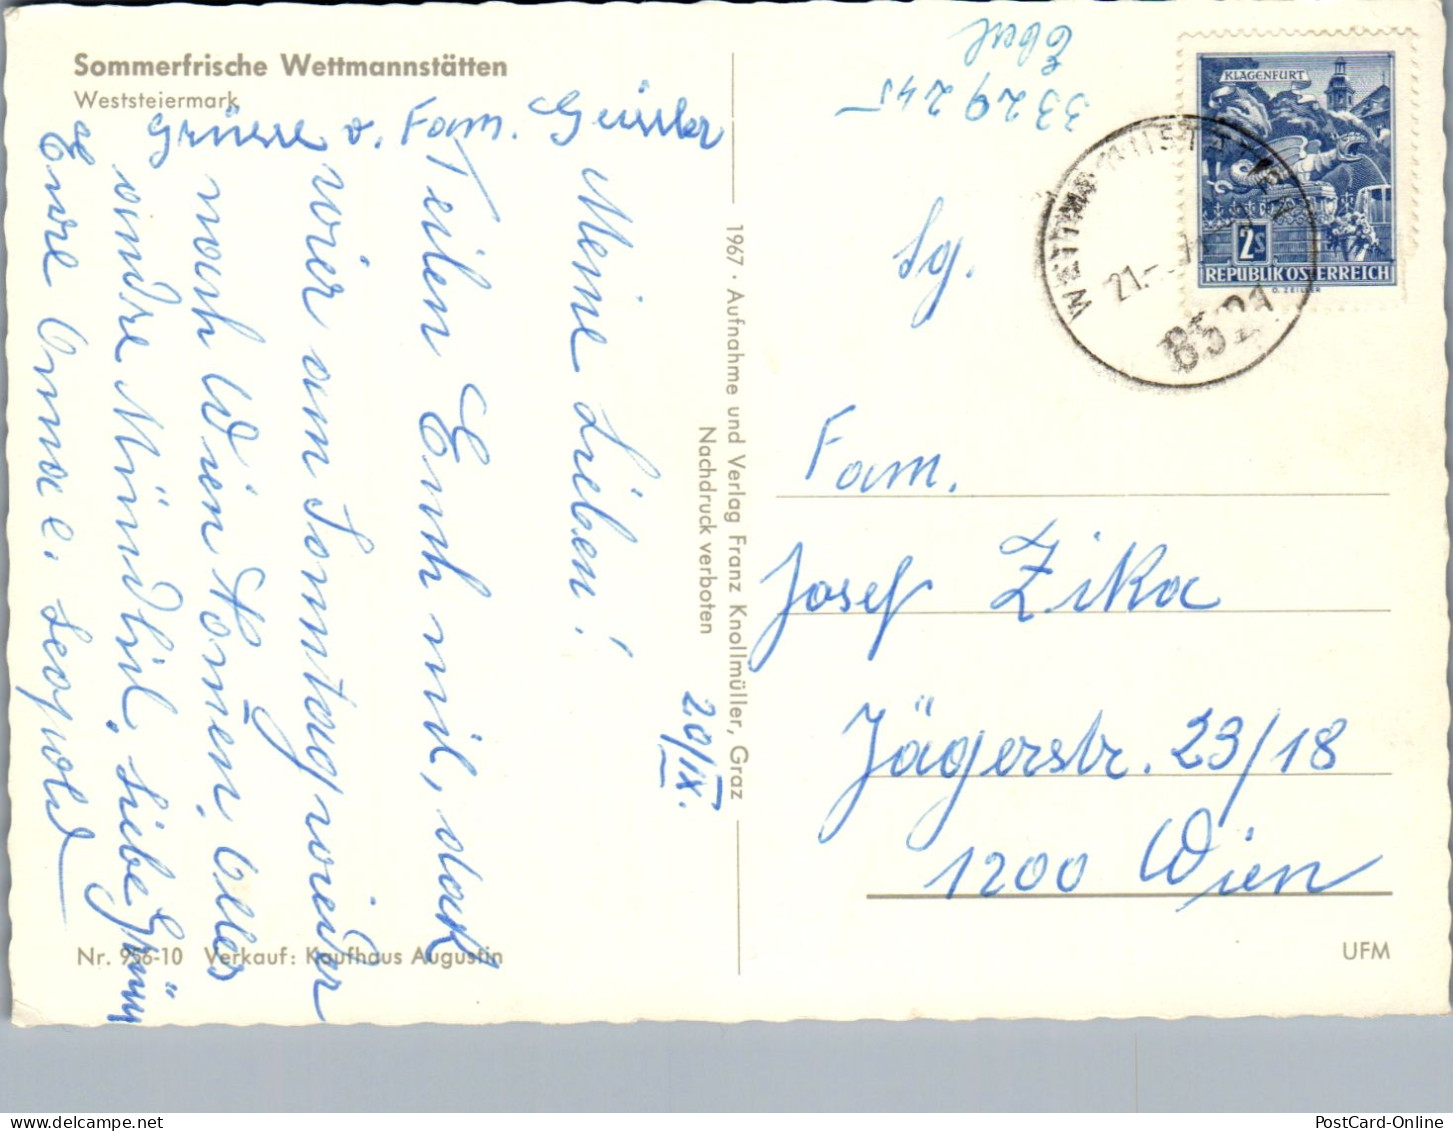 Sommerfrische Wettmannstätten
Weststeiermark
Grüsse v. Fam. Geissler
Meine Lieben!
Teilen Euch mit, das
wier am Sonntag wieder
nach Wien komen. Alles
andre Mündlich. Liebe Grüsse
Eure Anna e. Leopold
20/IX.
1967 · Aufnahme und Verlag Franz Knollmüller, Graz
Nachdruck verboten
Nr. 956-10 Verkauf: Kaufhaus Augustin
3329245
KLAGENFURT
2S
REPUBLIK ÖSTERREICH
O. ZEILLER
WETTMANNSTÄTTEN
21.
8521
Sg.
Fam.
Josef Zika
Jägerstr. 23/18
1200 Wien
UFM
PostCard-Online